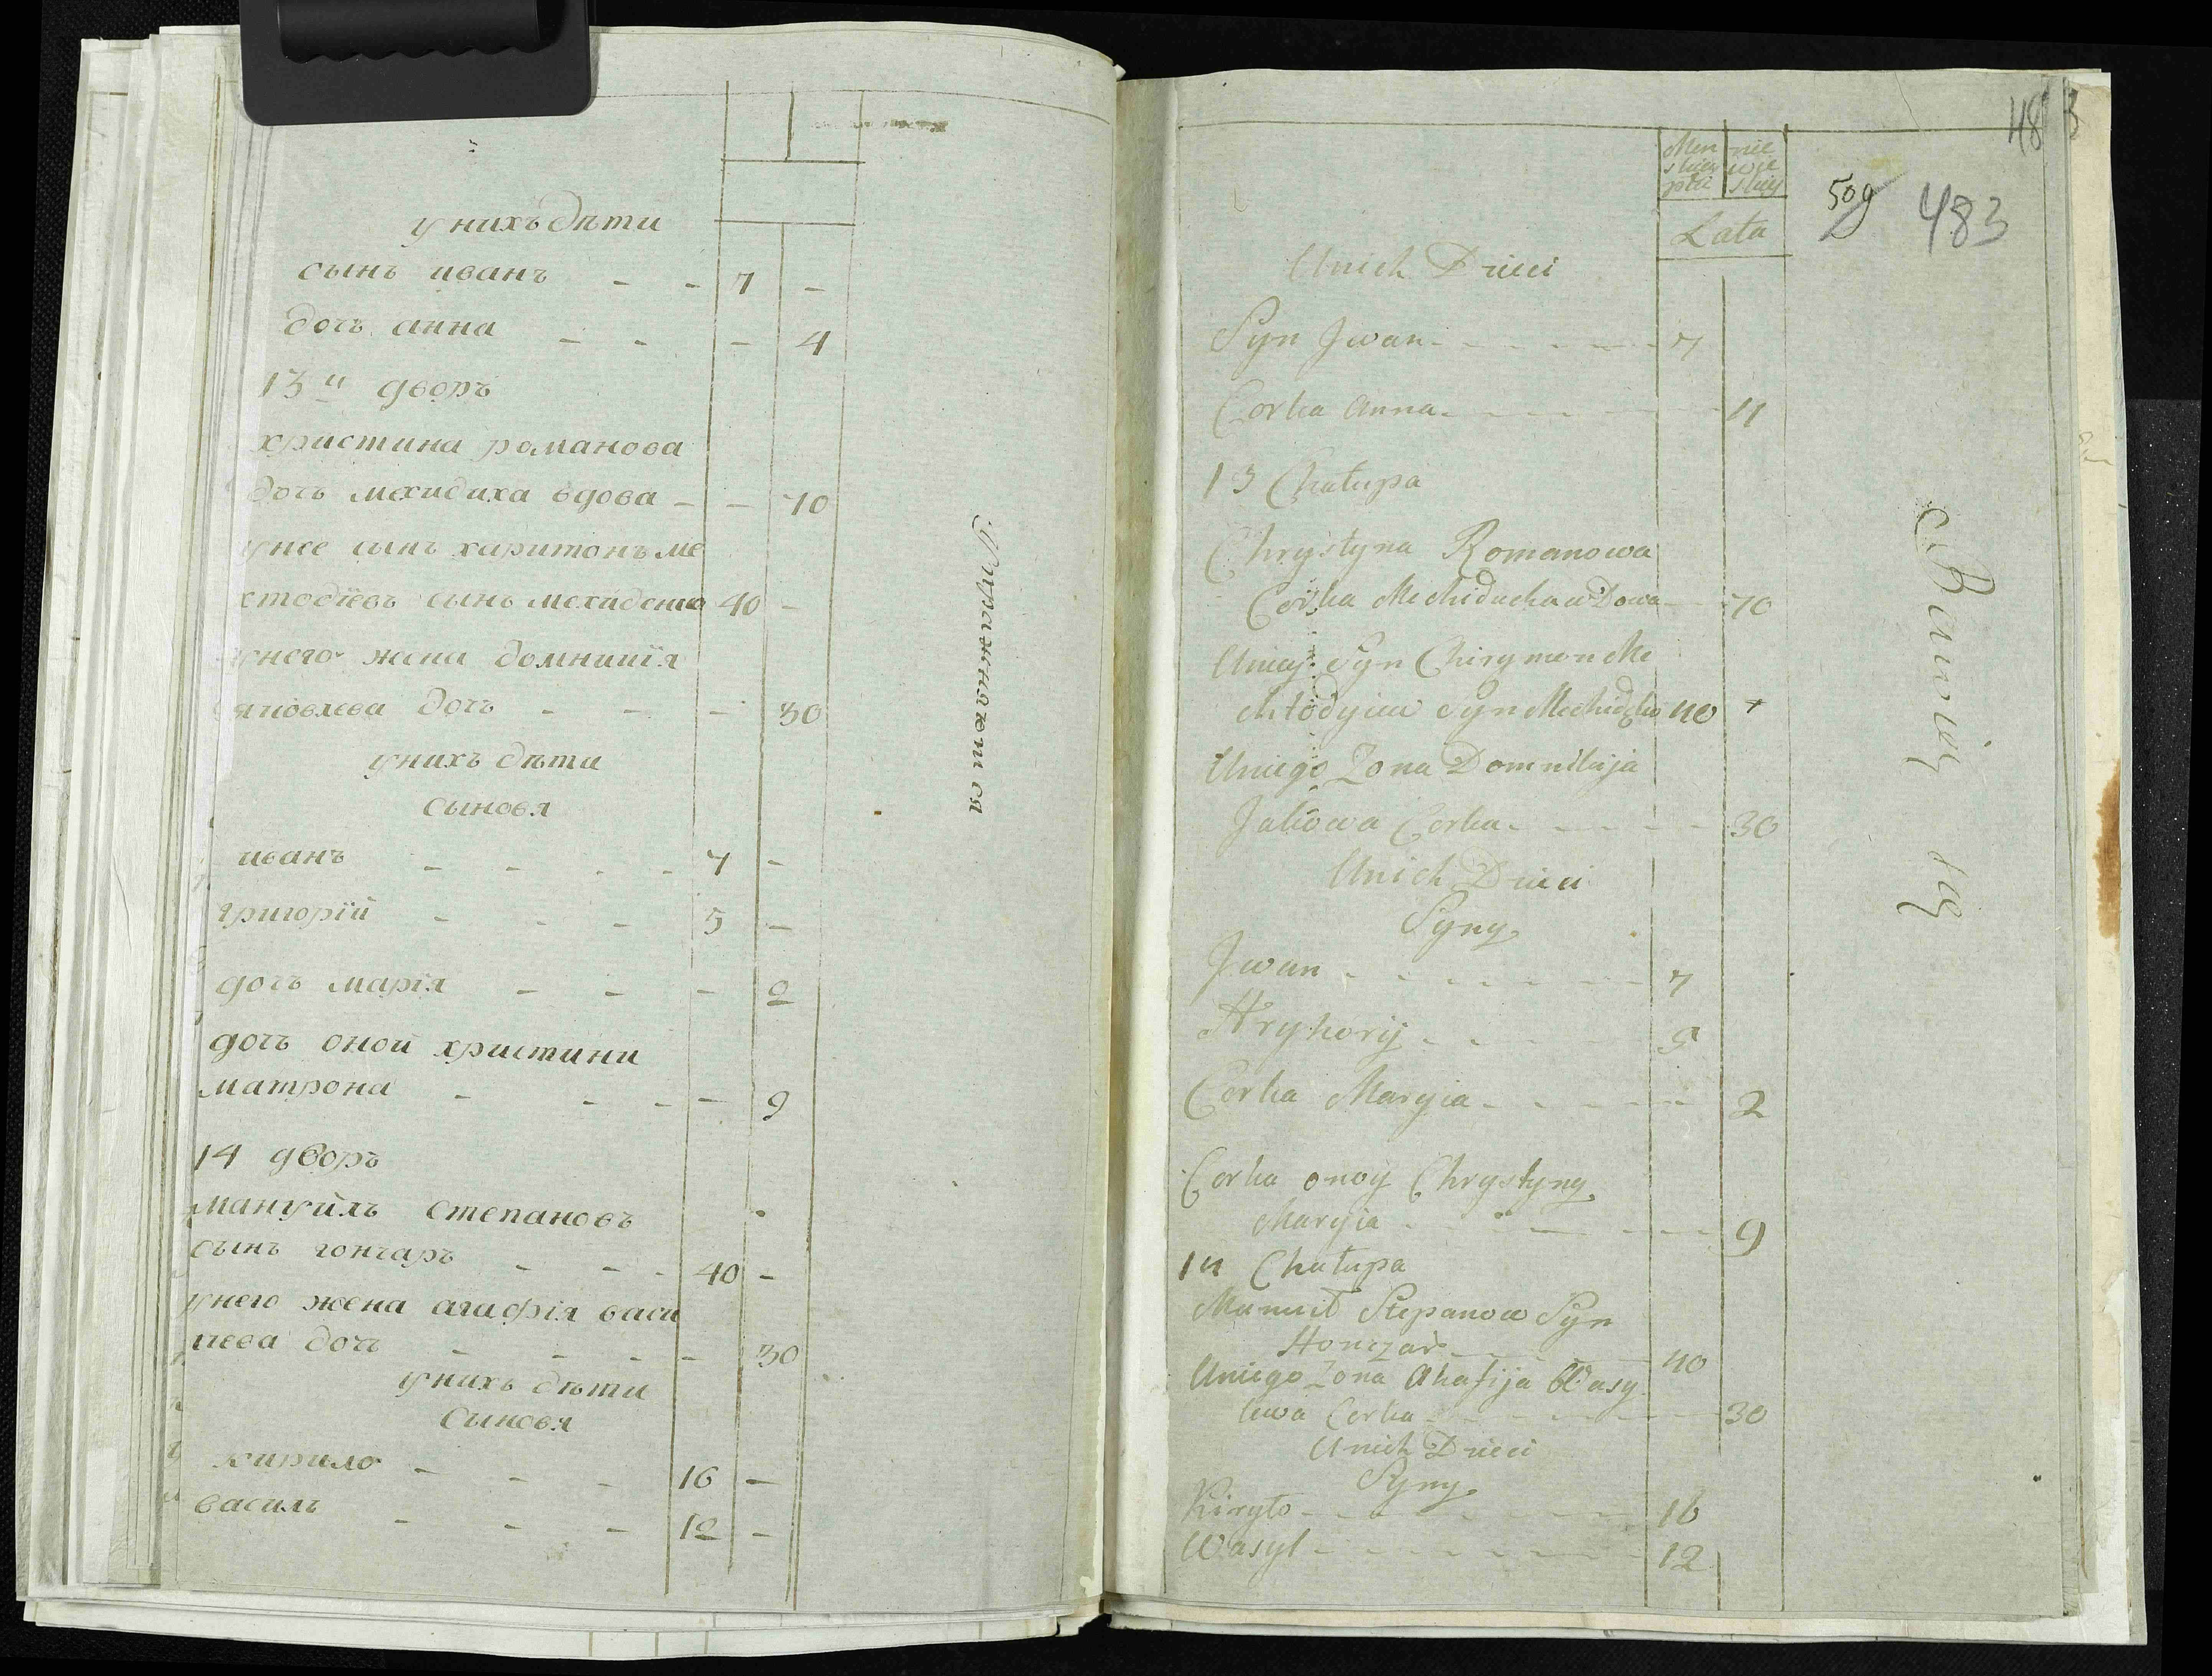 у нихъ дѣти
сынъ иванъ - - 7 -
дочь анна - - - 4
13й дворъ
христина романова
дочь мехидиха вдова - - 70
унее сынъ харитонъ ме
ѳтодіевъ сынъ мехиденко 40 -
унего жена домникия
яковлева дочь - - - 30
унихъ дѣти
сыновя
иванъ - - - - 7 -
григорій - - - 5 -
дочь марія - - - 2
дочь оной христини
матрона - - - - 9
14 дворъ
мануйлъ степановъ
сынъ гончаръ - - - 40 -
унего жена агафія васи
лева дочь - - - - 30
унихъ дѣти
сыновя
кирило - - - 16 -
василь - - - 12 -
Упражнаются
48
3
509 483
Męn skiey płci
nie wie skiey
Lata
Unich Dzieci
Syn Jwan - - - - - 7
Corka Anna - - - - - 4
13 Chałupa
Chrystyna Romanowa
Corka Mechiducha wDowa - 70
Uniey Syn Chirymon Me
chtodyiew Syn Mechidęko 40
Uniego Zona Domnikija
Jakowa Corka - - - - 30
Unich Dzieci
Syny
Jwan - - - - - - 7
Hryhorij - - - - 5
Corka Maryia - - - - - 2
Corka onoy Chrystyny
Maryia - - - - - 9
14 Chałupa
Manuił Stepanow Syn
Honczar - - - 40
Uniego Zona Ahafija Wasy
lewa Corka - - - - - 30
Unich Dzieci
Syny
Kiryło - - - - - 16
Wasyl - - - - - 12
Bawią się